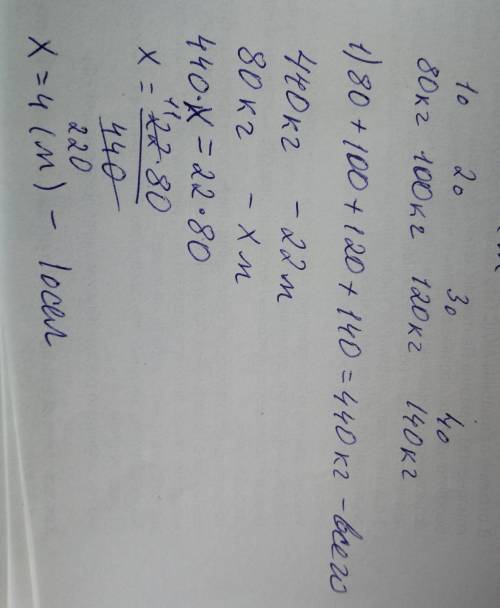 1о 2о 3о 4о
80кг 100кг 120кг 140кг
1) 80 + 100 + 120 + 140 = 440кг - всего
440кг - 22м
80кг - хм
440·х = 22·80
11
х = 22·80
440
220
х = 4(м) - 1осел